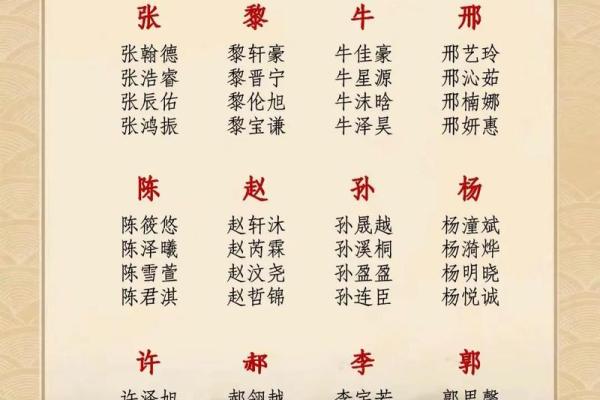 张 黎 牛 邢
张翰德 黎轩豪 牛佳豪 邢艺玲
张浩睿 黎晋宁 牛星源 邢沁茹
张辰佑 黎伦旭 牛沫晗 邢楠娜
张鸿振 黎宝谦 牛泽昊 邢妍惠
陈 赵 孙 杨
陈筱悠 赵轩沐 孙晟越 杨潼斌
陈泽曦 赵芮霖 孙溪桐 杨漪烨
陈雪萱 赵汶尧 孙盈盈 杨明晓
陈君淇 赵哲锦 孙连臣 杨悦诚
许 郝 李 郭
许泽旭 郝翎越 李宇若 郭思馨